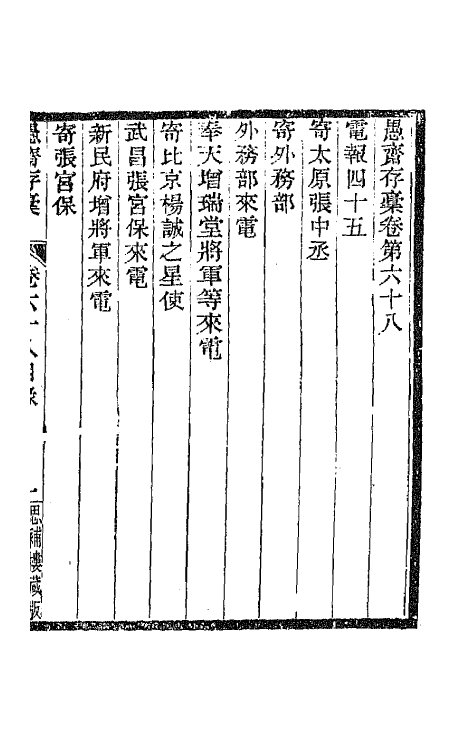 愚齋存稾卷第六十八
電報四十五
寄太原張中丞
寄外務部
外務部來電
奉天增瑞堂將軍等來電
寄比京楊誠之星使
武昌張宮保來電
新民府增將軍來電
寄張宮保
愚齋存稾
卷六十八目錄
一
思補樓藏版